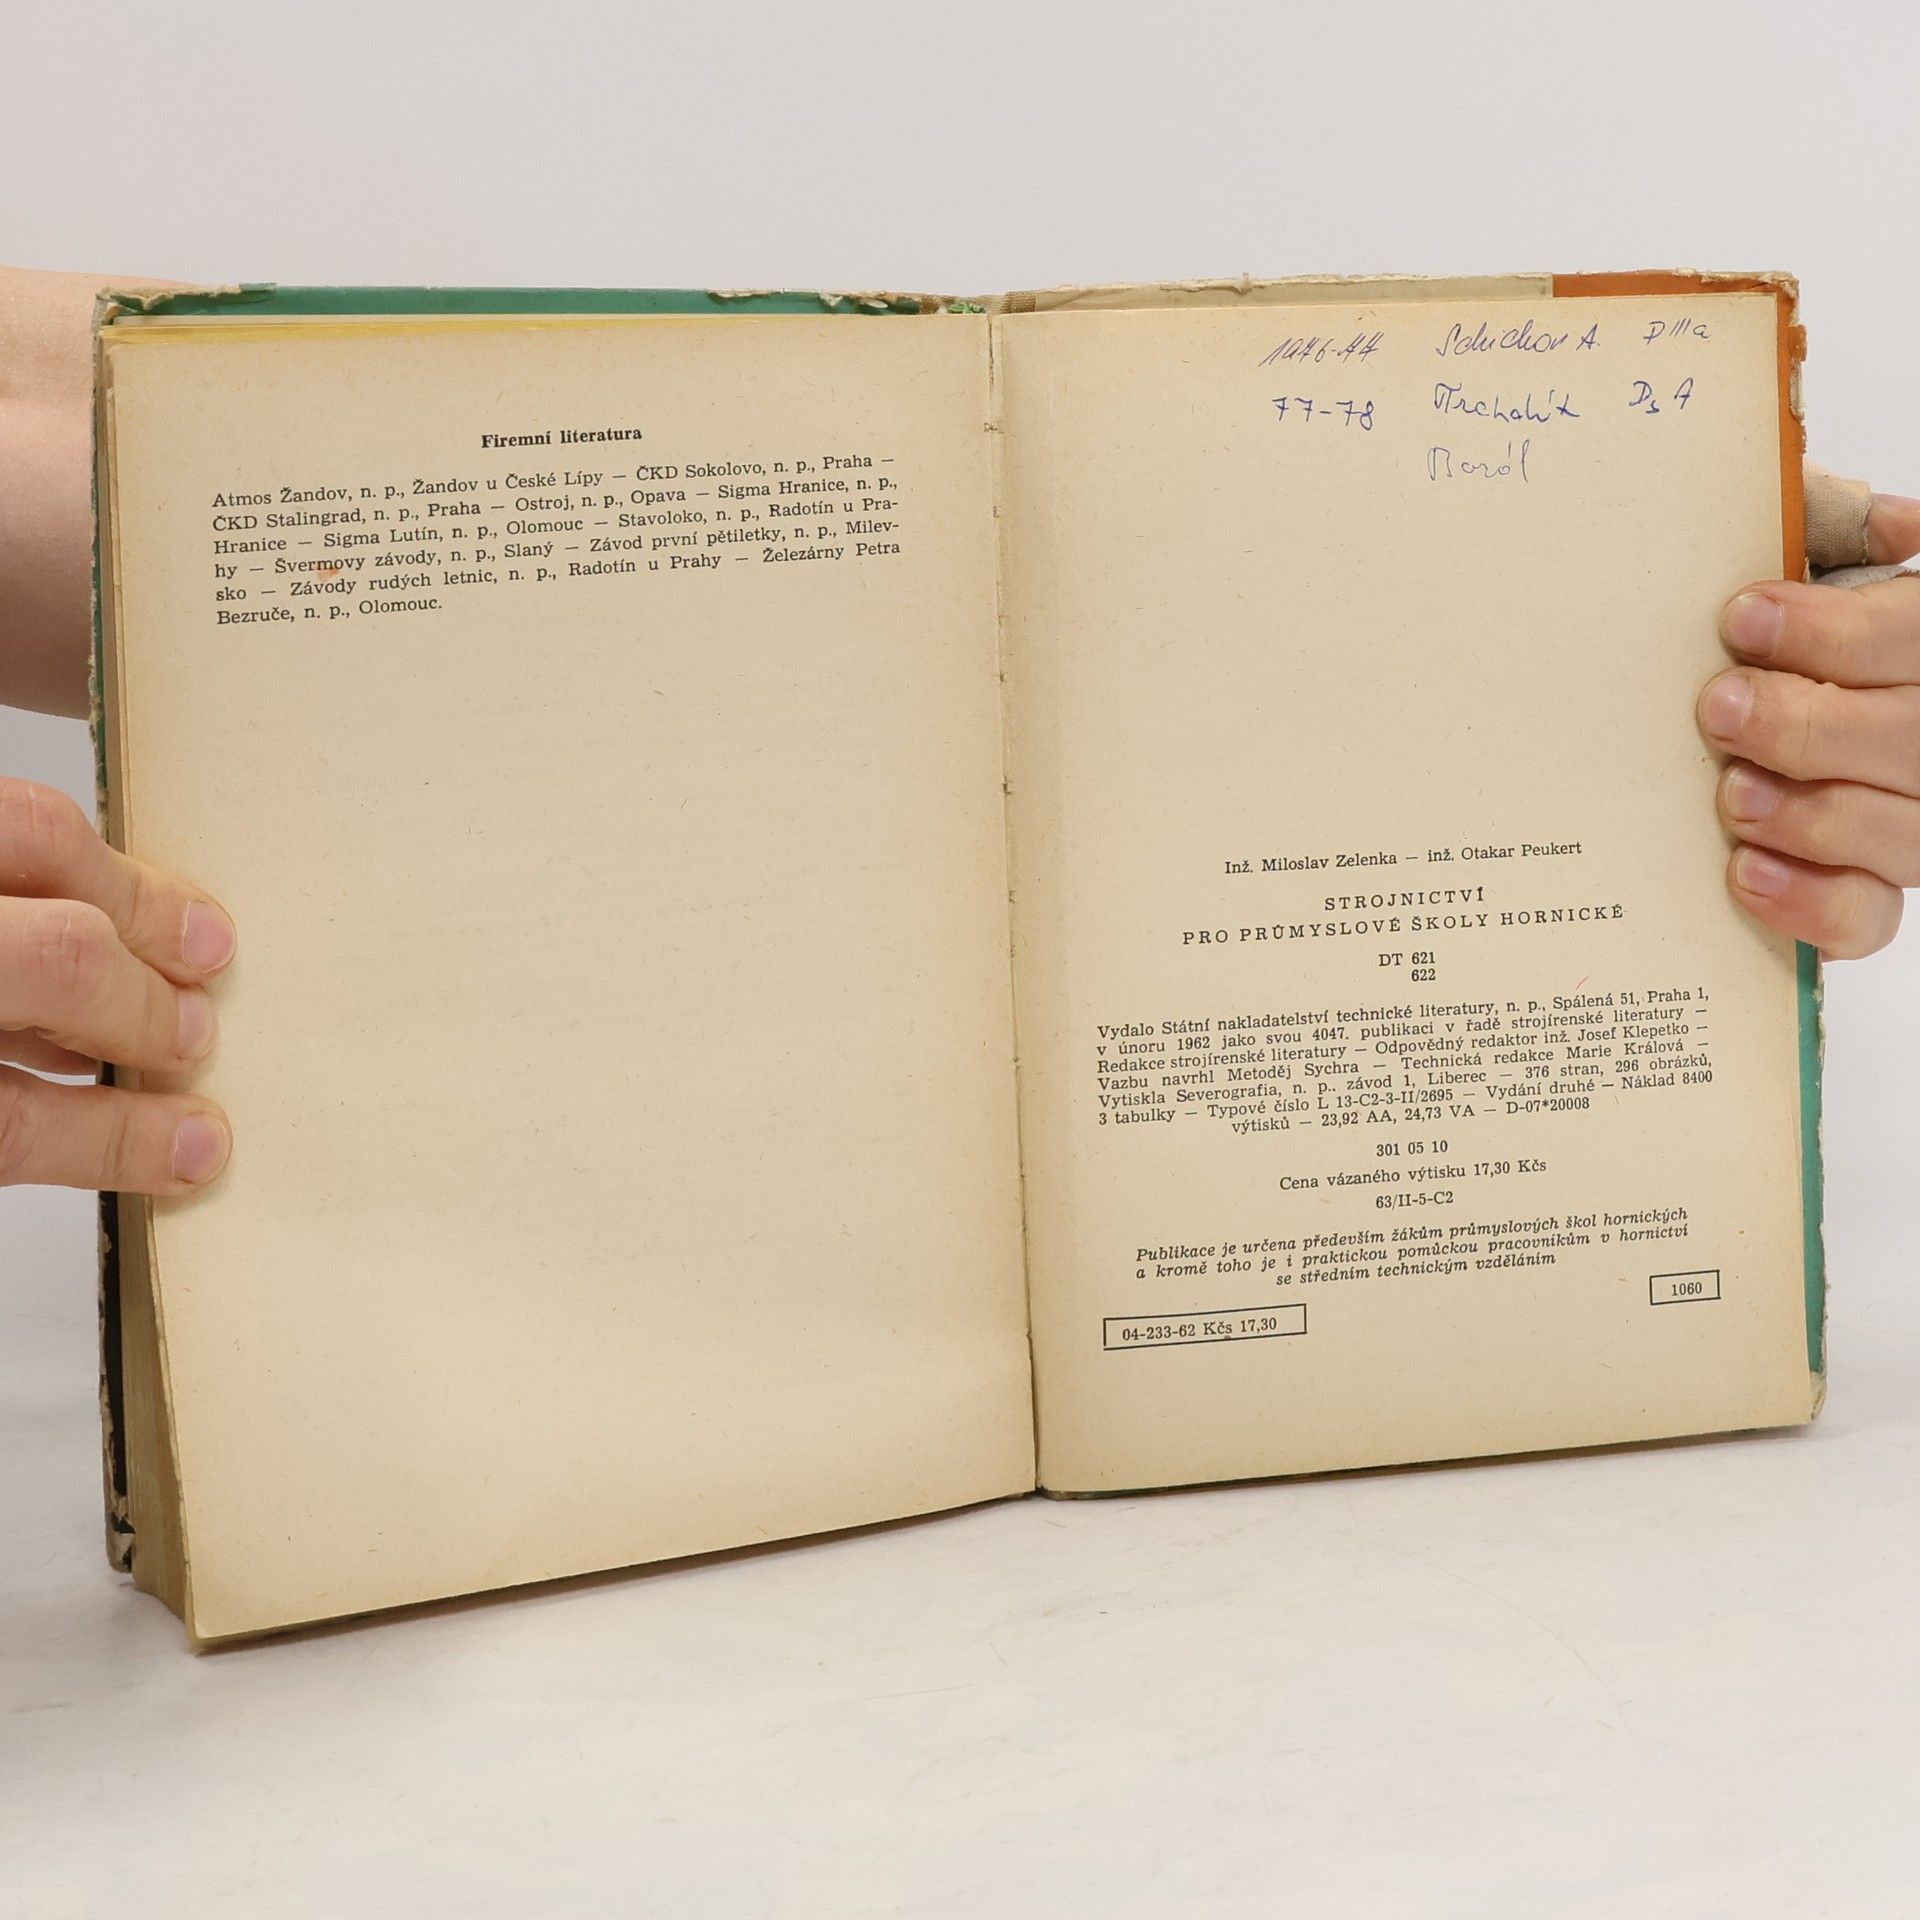 Firemní literatura
Atmos Žandov, n. p., Žandov u České Lípy — ČKD Sokolovo, n. p., Praha —
ČKD Stalingrad, n. p., Praha — Ostroj, n. p., Opava — Sigma Hranice, n. p.,
Hranice — Sigma Lutín, n. p., Olomouc — Stavoloko, n. p., Radotín u Pra-
hy — Švermovy závody, n. p., Slaný — Závod první pětiletky, n. p., Milev-
sko — Závody rudých letnic, n. p., Radotín u Prahy — Železárny Petra
Bezruče, n. p., Olomouc.
1976-77 A. D III a
77-78
Inž. Miloslav Zelenka — inž. Otakar Peukert
STROJNICTVÍ
PRO PRŮMYSLOVÉ ŠKOLY HORNICKÉ
DT 621
622
Vydalo Státní nakladatelství technické literatury, n. p., Spálená 51, Praha 1,
v únoru 1962 jako svou 4047. publikaci v řadě strojírenské literatury —
Redakce strojírenské literatury — Odpovědný redaktor inž. Josef Klepetko —
Vazbu navrhl Metoděj Sychra — Technická redakce Marie Králová —
Vytiskla Severografia, n. p.. závod 1, Liberec — 376 stran, 296 obrázků,
3 tabulky — Typové číslo L 13-C2-3-II/2695 — Vydání druhé — Náklad 8400
výtisků — 23,92 AA, 24,73 VA — D-07*20008
301 05 10
Cena vázaného výtisku 17,30 Kčs
63/II-5-C2
Publikace je určena především žákům průmyslových škol hornických
a kromě toho je i praktickou pomůckou pracovníkům v hornictví
se středním technickým vzděláním
1060
04-233-62 Kčs 17,30